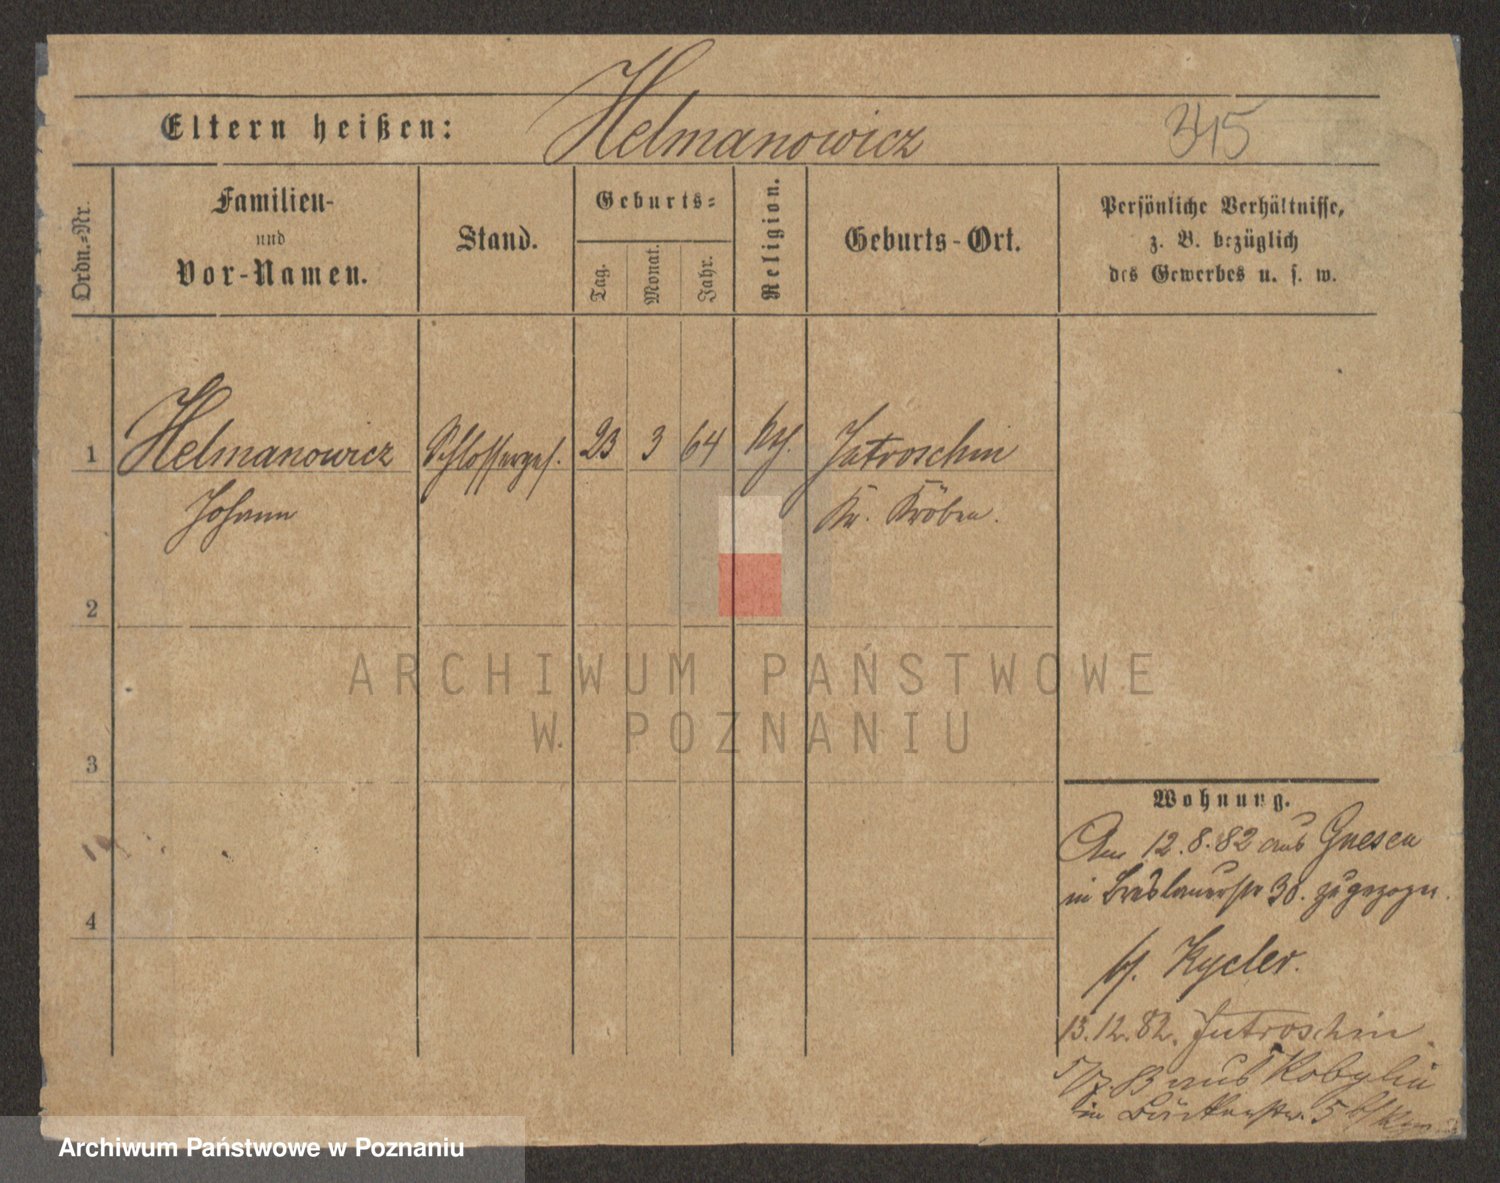 Eltern heißen: Helmanowicz 345
Ordn.=Nr.
Familien-
und
Vor-Namen.
Stand.
Geburts=
Tag.
Monat.
Jahr.
Religion.
Geburts-Ort.
Persönliche Verhältnisse,
z. B. bezüglich
des Gewerbes u. s. w.
1 Helmanowicz Schlosserges. 23 3 64 Jutroschin
Johann Kr. Kröben.
2
3
4
Wohnung.
Am 12.8.82 aus Gnesen
in Breslauerstr 38. zugezogen.
bf. Kycler.
13.12.82. Jutroschin
5/7.83 aus Kobylin
in 5 bf
ARCHIWUM PAŃSTWOWE
W POZNANIU
Archiwum Państwowe w Poznaniu